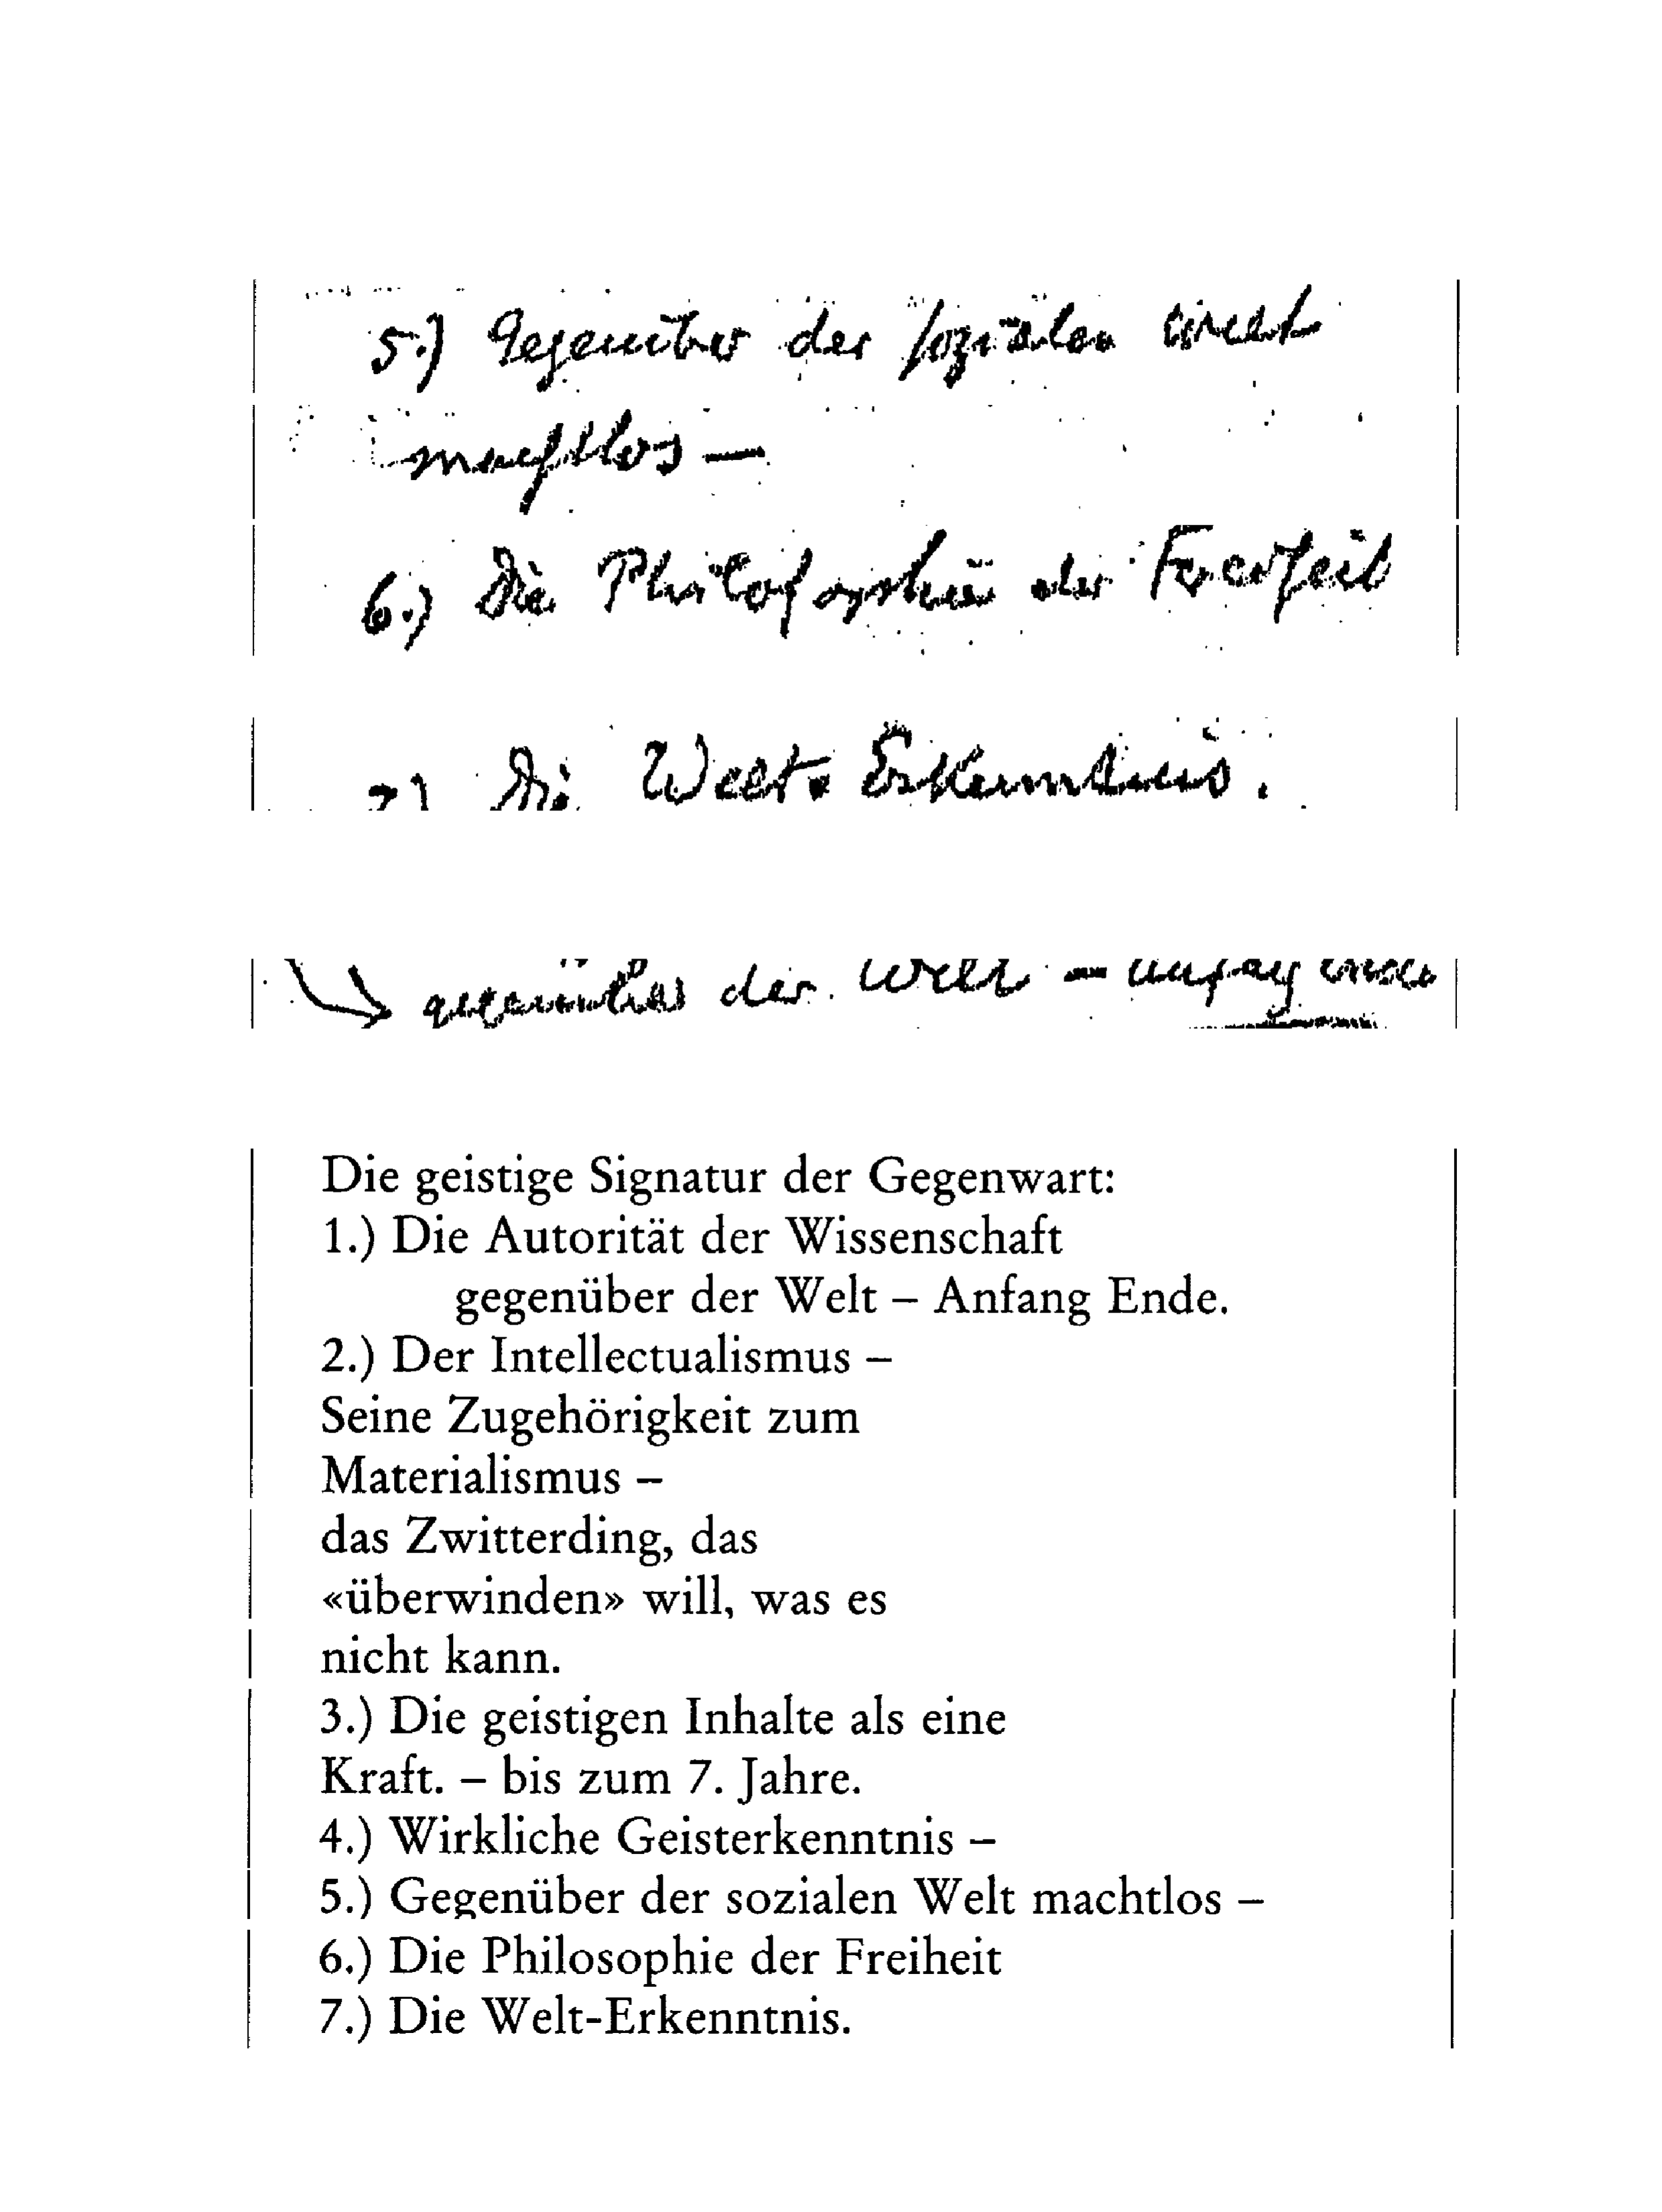 5.) Gegenüber der sozialen Welt
machtlos –
6.) Die Philosophie der Freiheit
7.) Die Welt-Erkenntnis.
gegenüber der Welt – Anfang Ende
Die geistige Signatur der Gegenwart:
1.) Die Autorität der Wissenschaft
gegenüber der Welt – Anfang Ende.
2.) Der Intellectualismus –
Seine Zugehörigkeit zum
Materialismus –
das Zwitterding, das
«überwinden» will, was es
nicht kann.
3.) Die geistigen Inhalte als eine
Kraft. – bis zum 7. Jahre.
4.) Wirkliche Geisterkenntnis –
5.) Gegenüber der sozialen Welt machtlos –
6.) Die Philosophie der Freiheit
7.) Die Welt-Erkenntnis.